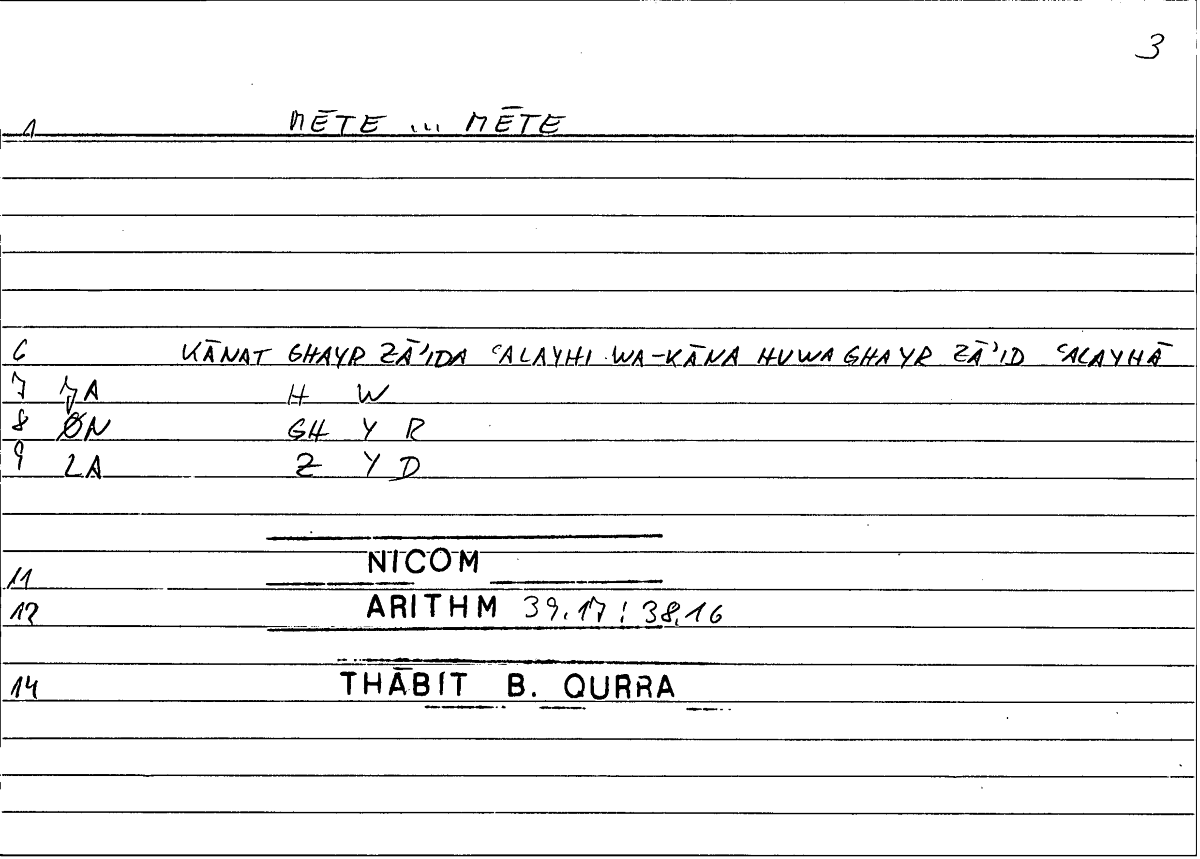 3
1 MĒTE ... MĒTE
6 KĀNAT GHAYR ZĀʾIDA ʿALAYHI WA-KĀNA HUWA GHAYR ZĀʾID ʿALAYHĀ
7 7A H W
8 ØN GH Y R
9 2A Z Y D
11 NICOM
12 ARITHM 39.17 : 38.16
14 THĀBIT B. QURRA